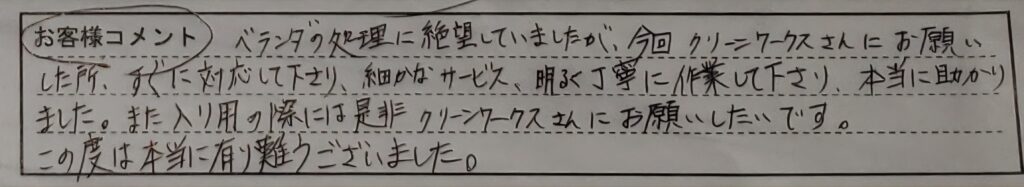 お客様コメント ベランダの処理に絶望していましたが、今回 クリーンワークスさんに お願い
した所、すぐに対応して下さり、細かなサービス、明るく丁寧に作業して下さり、本当に助かり
ました。また入り用の際には是非 クリーンワークスさんに お願いしたいです。
この度は本当に有り難うございました。